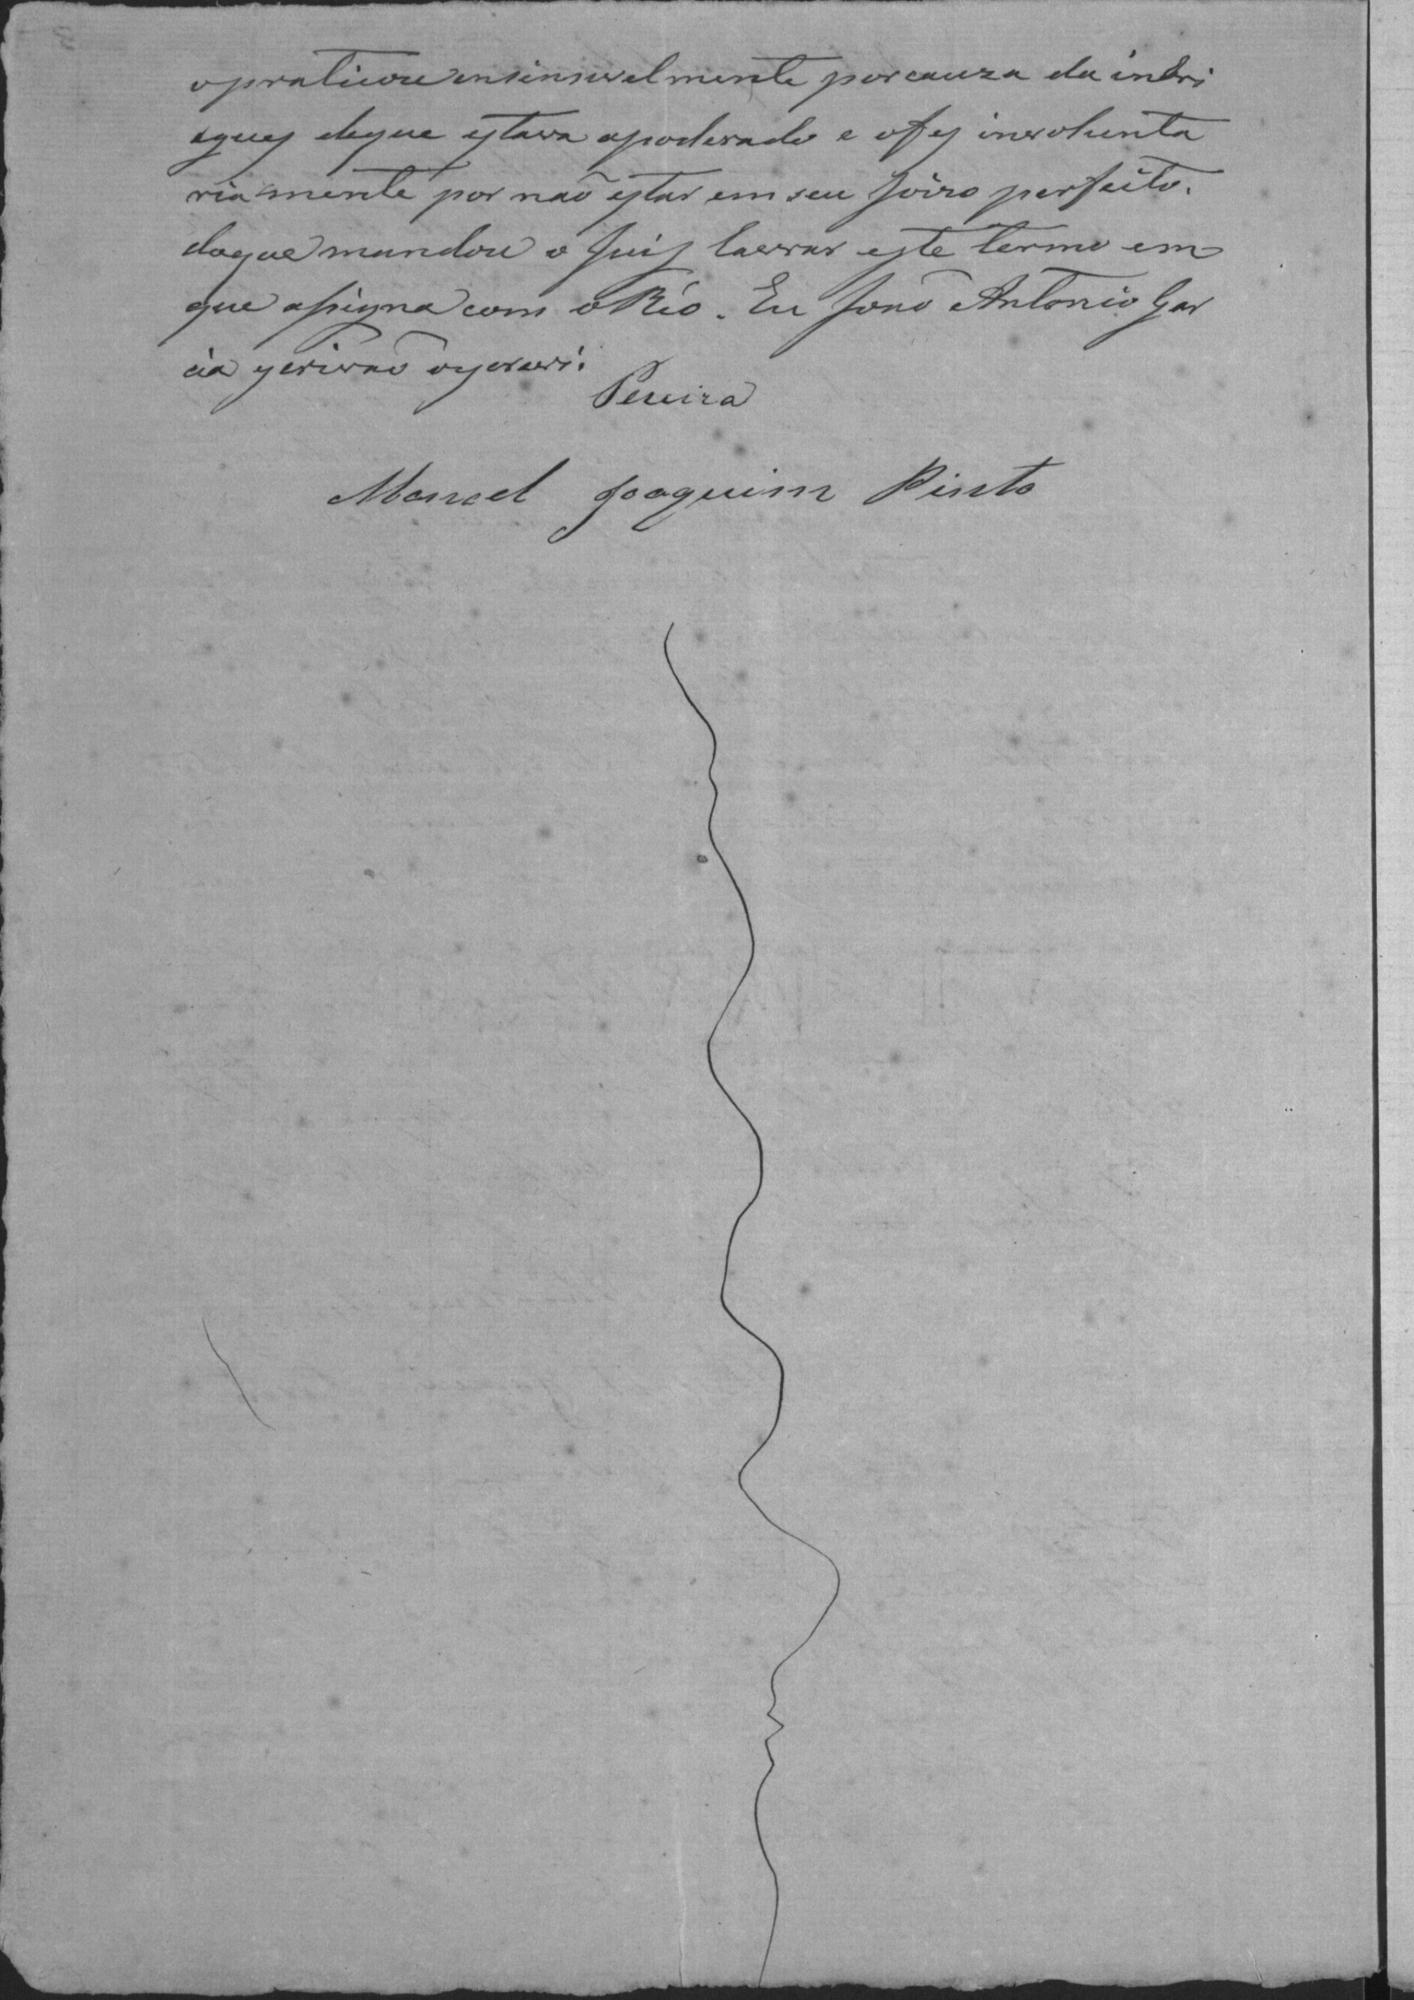 o praticou ensinsivelmente por cauza da imbri
aguez de que estava apoderado e o fez involunta
riamente por não estar em seu Joizo perfeito.
do que mandou o Juiz lavrar este termo em
que assigna com o Réo. Eu João Antonio Gar
cia escrivão o escrevi.
Pereira
Manoel Joaquim Pinto